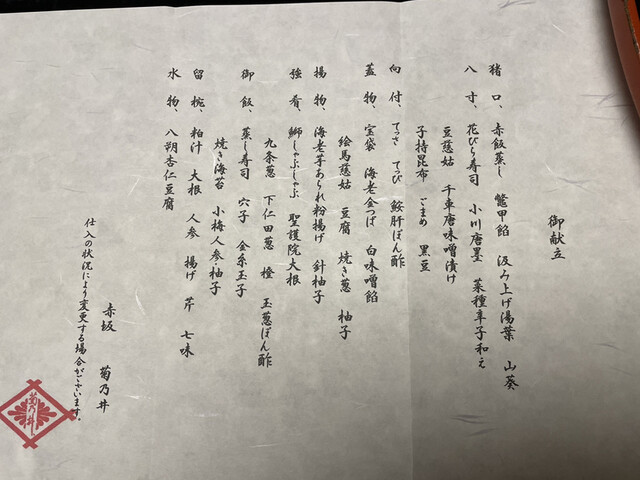 御献立
猪口、赤飯蒸し 鼈甲餡 汲み上げ湯葉 山葵
八寸、花びら寿司 小川唐墨 菜種辛子和え
豆慈姑 千車唐味噌漬け
子持昆布 ごまめ 黒豆
向付、てっさ てっぴ 鮟肝ぽん酢
蓋物、宝袋 海老金つば 白味噌餡
絵馬慈姑 豆腐 焼き葱 柚子
揚物、海老芋あられ粉揚げ 針柚子
強肴、鰤しゃぶしゃぶ 聖護院大根
九条葱 下仁田葱 橙 玉葱ぽん酢
御飯、蒸し寿司 穴子 金糸玉子
焼き海苔 小梅人参 柚子
留椀、粕汁 大根 人参 揚げ 芹 七味
水物、八朔杏仁豆腐
赤坂 菊乃井
仕入の状況により変更する場合がございます。
菊乃井